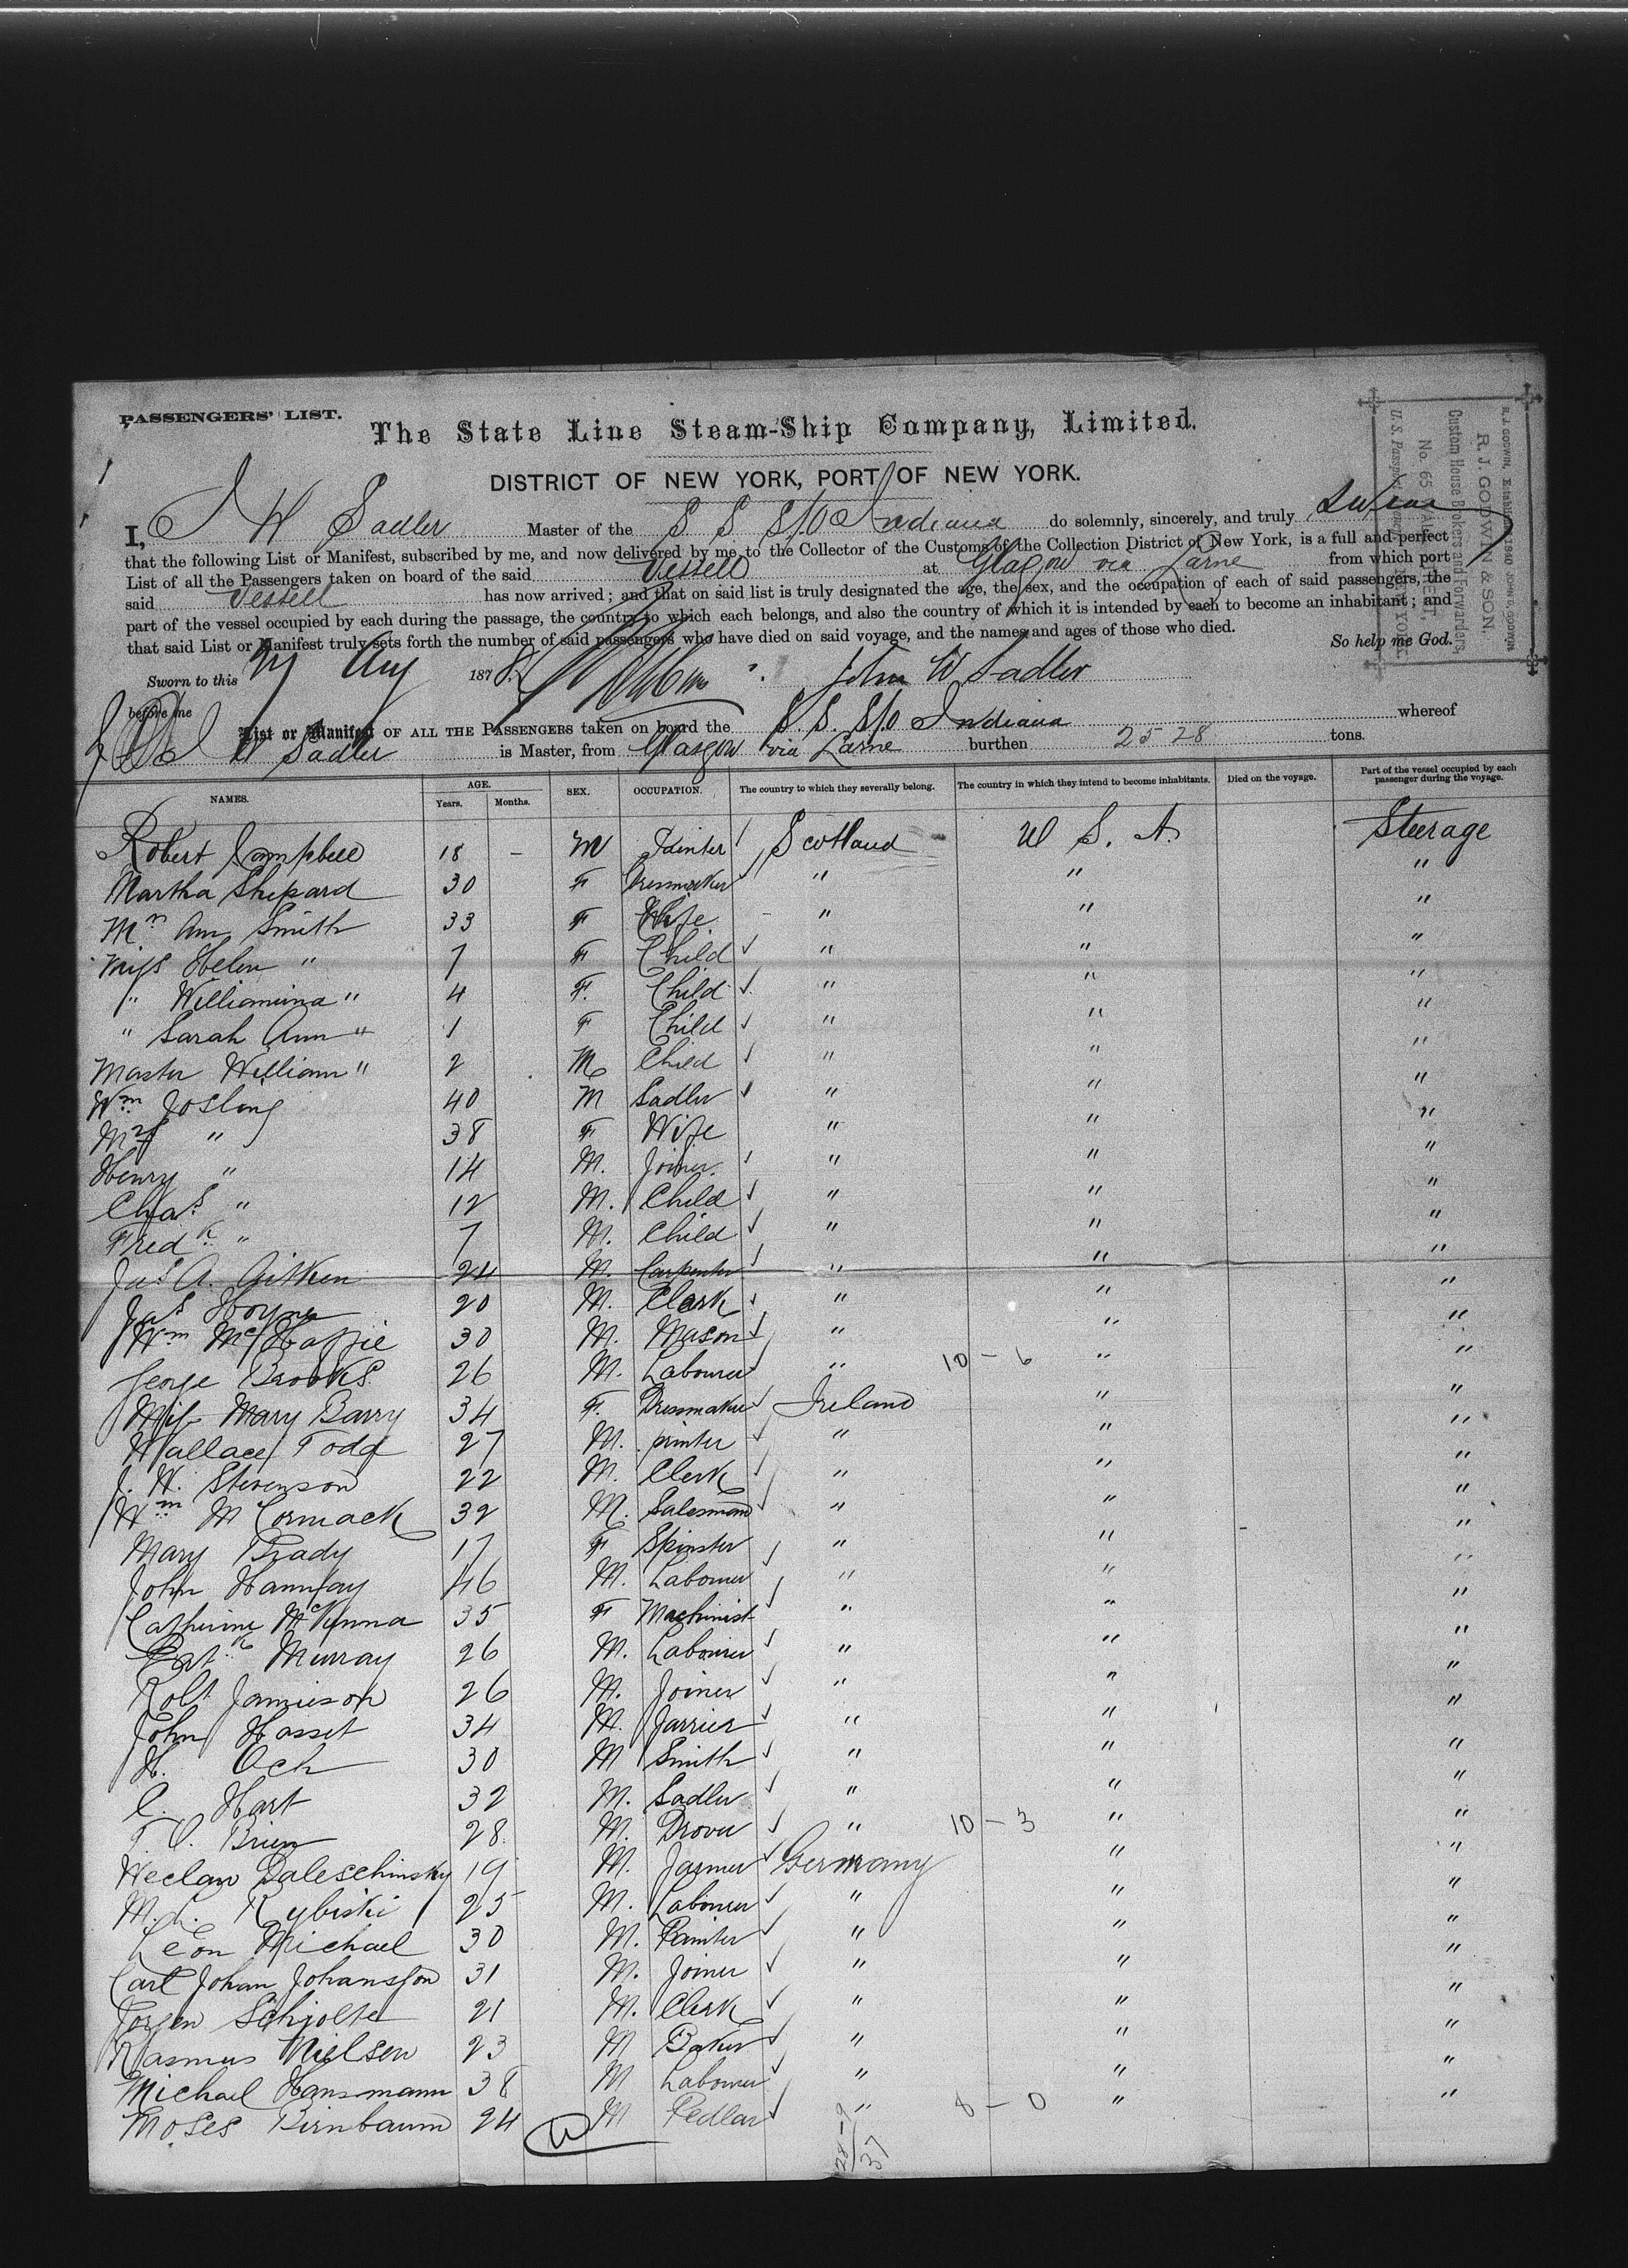 PASSENGERS' LIST.
The State Line Steam-Ship Company, Limited.
DISTRICT OF NEW YORK, PORT OF NEW YORK.
R. J. GODWIN & SON.
Custom House Brokers and Forwarders,
I, J W Sadler Master of the S S S/o Indiana do solemnly, sincerely, and truly Swear
that the following List or Manifest, subscribed by me, and now delivered by me to the Collector of the Customs of the Collection District of New York, is a full and perfect
List of all the Passengers taken on board of the said Vessell at Glasgow via Larne from which port
said Vessell has now arrived; and that on said list is truly designated the age, the sex, and the occupation of each of said passengers, the
part of the vessel occupied by each during the passage, the country to which each belongs, and also the country of which it is intended by each to become an inhabitant; and
that said List or Manifest truly sets forth the number of said passengers who have died on said voyage, and the names and ages of those who died.
So help me God.
Sworn to this Aug 1878 John W Sadler
before me
List or Manifest OF ALL THE PASSENGERS taken on board the S. S. S/o Indiana whereof
J W Sadler is Master, from Glasgow via Larne burthen 2528 tons.
NAMES. AGE. Years. Months. SEX. OCCUPATION. The country to which they severally belong. The country in which they intend to become inhabitants. Died on the voyage. Part of the vessel occupied by each passenger during the voyage.
Robert Campbell 18 - M Painter Scotland U S. A. Steerage
Martha Shepard 30 F Dressmaker " " "
Mrs Ann Smith 33 F Wife " " "
Miss Helen " 7 F Child " " "
" Williamina " 4 F. Child " " "
" Sarah Ann " 1 F Child " " "
Master William " 2 M Child " " "
Wm Josling 40 M Sadler " " "
Mrs " 38 F Wife " " "
Henry " 14 M. Joiner. " " "
Chas " 12 M. Child " " "
Fredk " 7 M. Child " " "
Jas A. Aitken 24 M. Carpenter " " "
Jas Hoyne 20 M. Clerk " " "
Wm McHaffie 30 M. Mason " " "
George Brooks 26 M. Labourer " 10 - 6 " "
Miss Mary Barry 34 F. Dressmaker Ireland " "
Wallace Todd 27 M. printer " " "
J. W. Stevenson 22 M. Clerk " " "
Wm McCormack 32 M. Salesman " " "
Mary Brady 17 F Spinster " " "
John Hannay 46 M. Labourer " " "
Catherine McKenna 35 F Machinist " " "
Patk Murray 26 M. Labourer " " "
Robt Jamieson 26 M. Joiner " " "
John Hasset 34 M. Farrier " " "
H. Och 30 M Smith " " "
C. Hart 32 M. Sadler " " "
T. O. Brien 28. M. Drover " 10 - 3 " "
Weclaw Daleschinsky 19 M. Farmer Germany " "
M. L. Rybiski 25 M. Labourer " " "
Leon Michael 30 M. Painter " " "
Carl Johan Johansson 31 M. Joiner " " "
Jorgen Schjolte 21 M. Clerk " " "
Rasmus Nielsen 23 M Baker " " "
Michael Hansmann 38 M Labourer " " "
Moses Birnbaum 24 M Pedlar " 8 - 0 " "
28 - 9
37